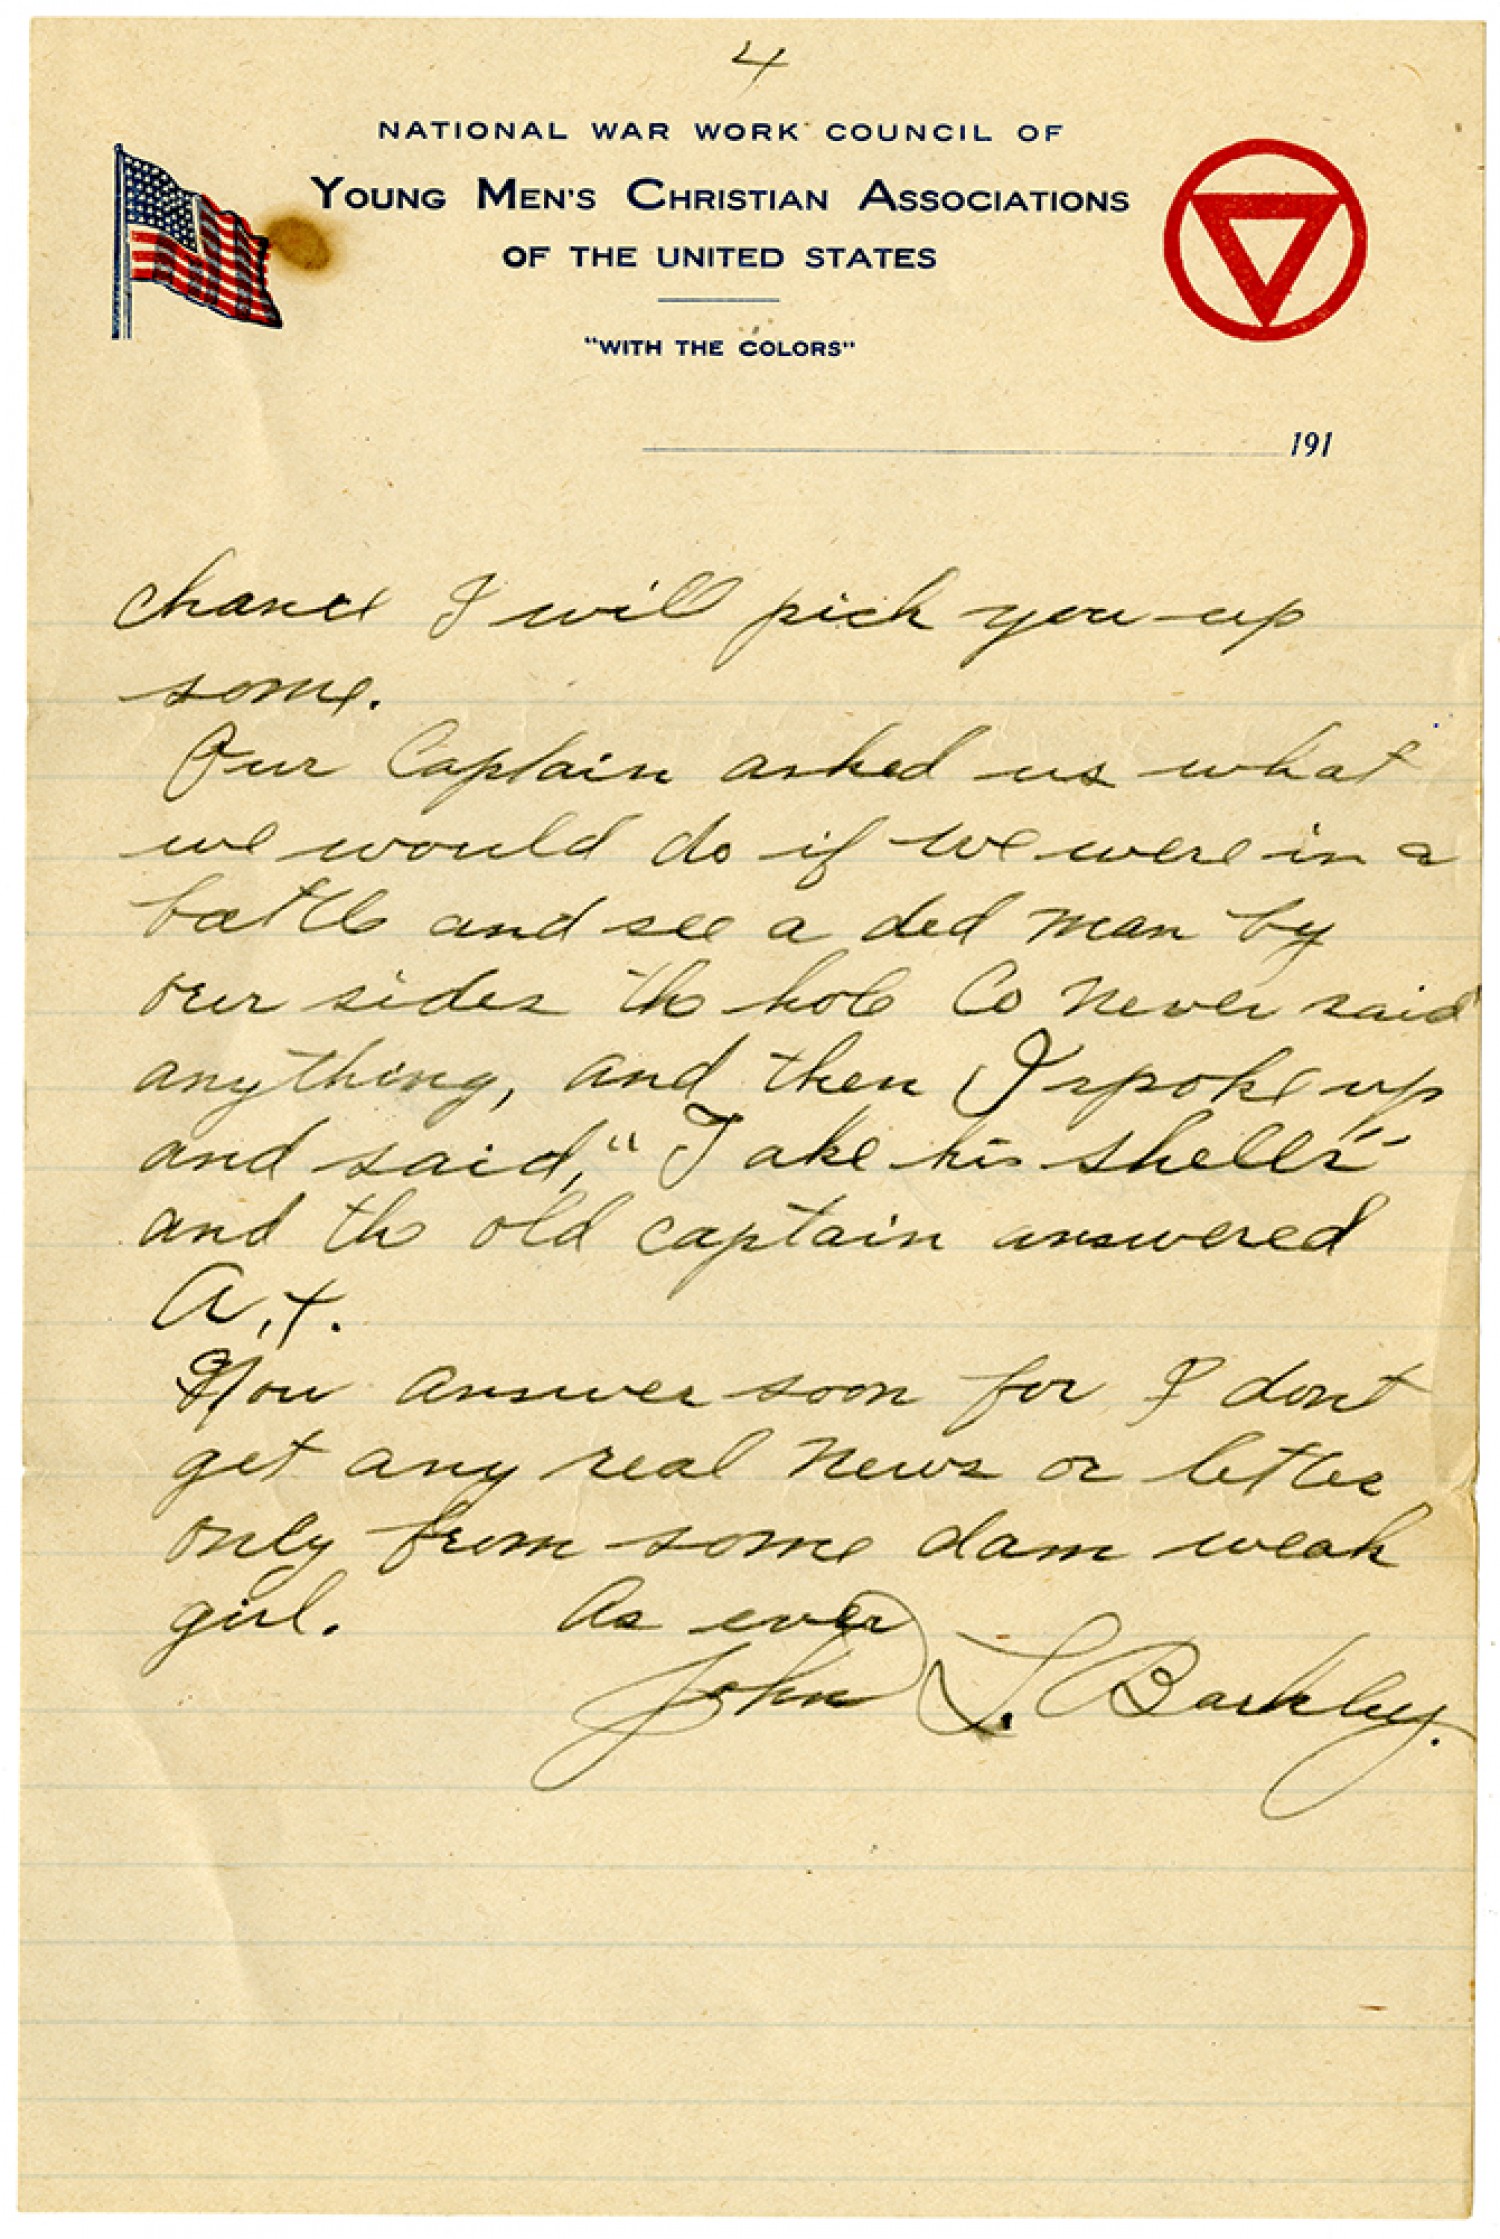 4
NATIONAL WAR WORK COUNCIL OF
YOUNG MEN'S CHRISTIAN ASSOCIATIONS
OF THE UNITED STATES
"WITH THE COLORS"
191
chance I will pick you up
some.
Our Captain asked us what
we would do if we were in a
battle and see a ded man by
our sides the hole Co never said
anything, and then I spoke up
and said, "Take his shells"
and the old captain answered
A.+.
Now answer soon for I dont
get any real news or letter
only from some dam weak
girl. As ever
John L. Barkley.